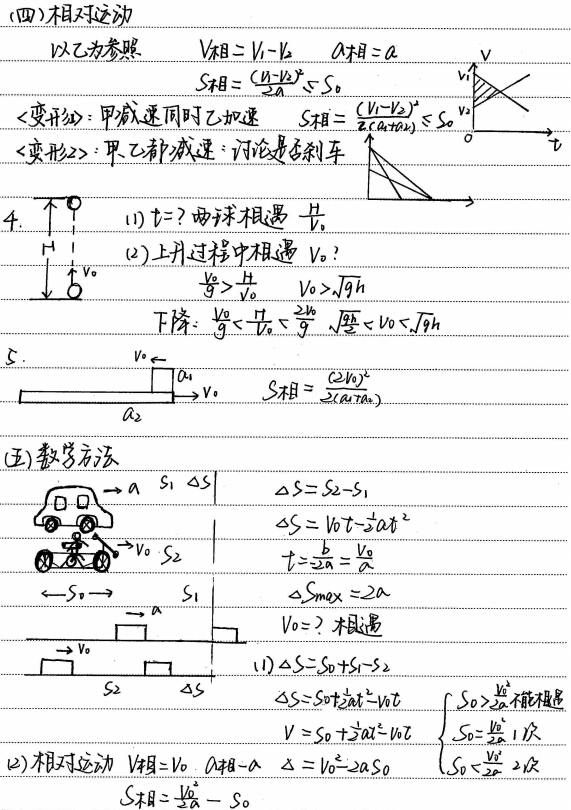 (四)相对运动
以乙为参照 V相=V₁-V₂ a相=a
S相=(V₁-V₂)²/2a ≤ S₀
V
V₁
V₂
0
t
<变形1>:甲减速同时乙加速 S相=(V₁-V₂)²/2(a₁+a₂) ≤ S₀
<变形2>:甲.乙都减速:讨论是否刹车
4.
H
V₀
(1) t=? 两球相遇 H/V₀
(2)上升过程中相遇 V₀?
V₀/g > H/V₀ V₀>√gh
下降: V₀/g < H/V₀ < 2V₀/g √(gh/2) < V₀ < √gh
5.
V₀
a₁
V₀
a₂
S相=(2V₀)²/2(a₁+a₂)
(五)数学方法
a S₁ ΔS
V₀ S₂
ΔS=S₂-S₁
ΔS=V₀t-½at²
t=b/-2a=V₀/a
ΔSmax=2a
S₀ S₁
a
V₀
S₂ ΔS
V₀=? 相遇
(1) ΔS=S₀+S₁-S₂
ΔS=S₀+½at²-V₀t
V=S₀+½at²-V₀t
Δ=V₀²-2aS₀
S₀>V₀²/2a 不能相遇
S₀=V₀²/2a 1次
S₀<V₀²/2a 2次
(2)相对运动 V相=V₀ a相-a
S相=V₀²/2a - S₀